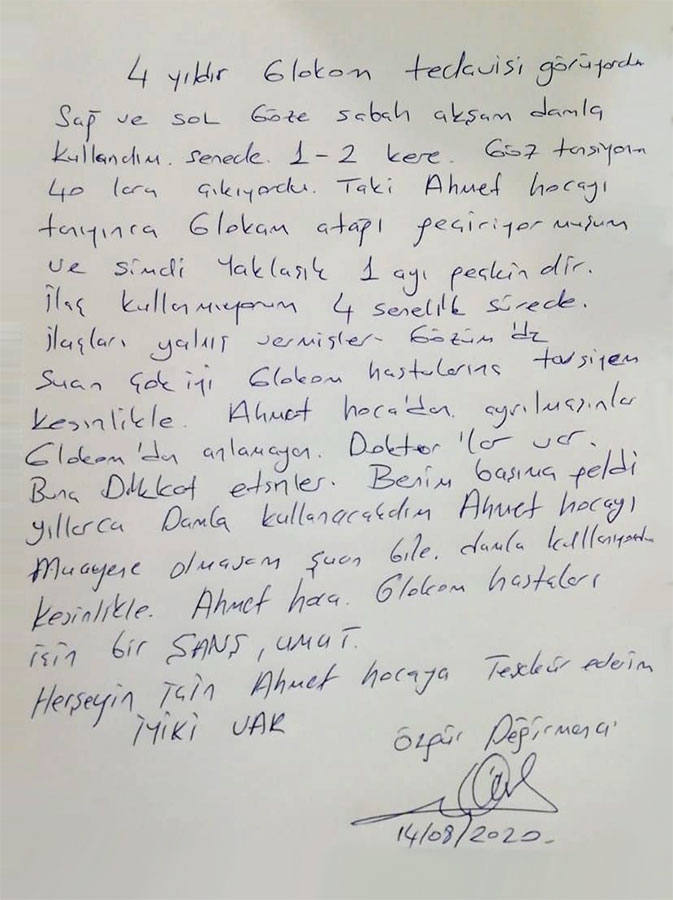 4 yıldır Glokom tedavisi görüyordum
Sağ ve sol Göze sabah akşam damla
kullandım. senede. 1-2 kere. Göz tansiyonım
40 lara çıkıyordu. Taki Ahmet hocayı
tanıyınca Glokom atağı geçiriyormuşum
ve şimdi Yaklaşık 1 ayı geçkindir.
İlaç kullanmıyorum 4 senelik sürede.
ilaçları yalnış vermişler. Gözüm'de
Şuan çok iyi Glokom hastalarına tavsiyem
Kesinlikle. Ahmet hoca'dan. ayrılmasınlar
Glokom'dan anlamayan. Doktor'lar var.
Buna Dikkat etsinler. Benim başıma geldi
yıllarca Damla kullanacaktım Ahmet hocayı
Muayene olmasam şuan bile. damla kulllanıyordum
Kesinlikle. Ahmet hoca. Glokom hastaları
için bir ŞANS, UMUT.
Herşeyin için Ahmet hocaya Teşekür ederim
İYİKİ VAR
Özgür Değirmenci
14/08/2020.